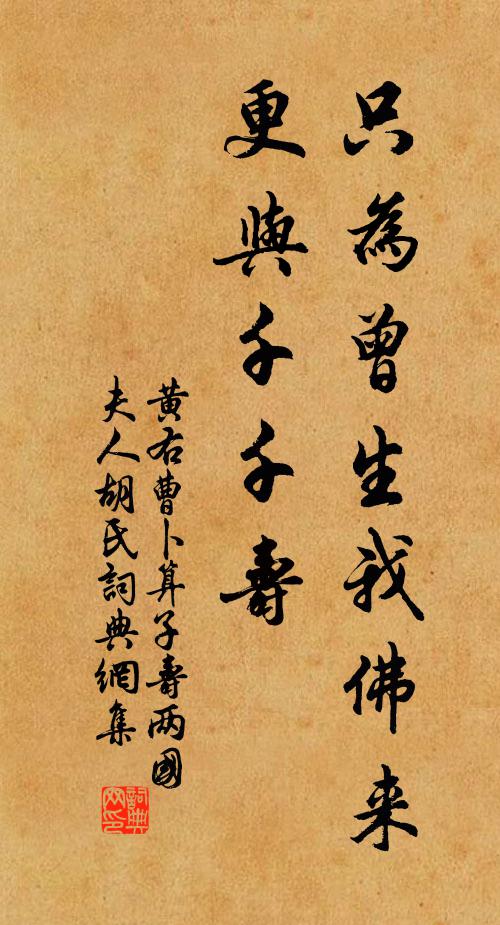 只為曾生我佛来
更與千千壽
黄右曹卜算子壽两國
夫人胡氏詞典網集
詞典
网印